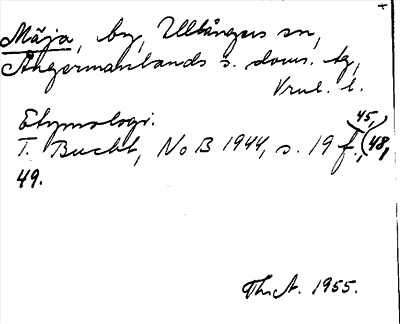 Mäja, by, Ullångers sn,
Ångermanlands s. doms. tg,
Vrnl. l.
Etymologi.
T. Bucht, NoB 1944, s. 19 f., 45, (48,
49.
Th. A. 1955.